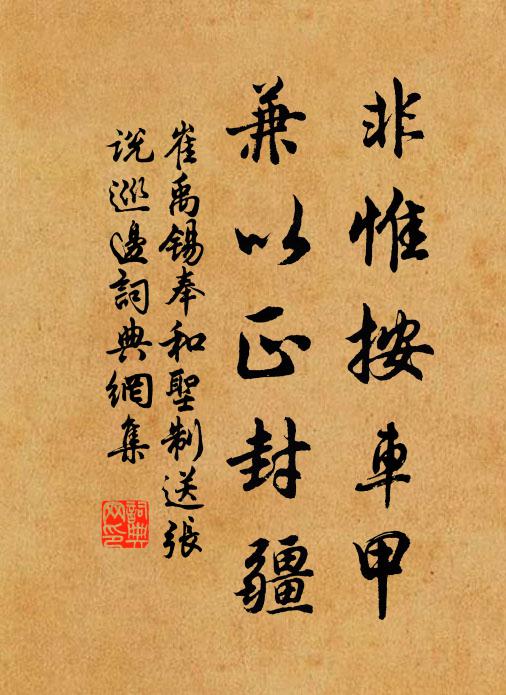 非惟按車甲
兼以正封疆
崔禹錫奉和聖制送張
说巡邊詞典網集
詞典
网印